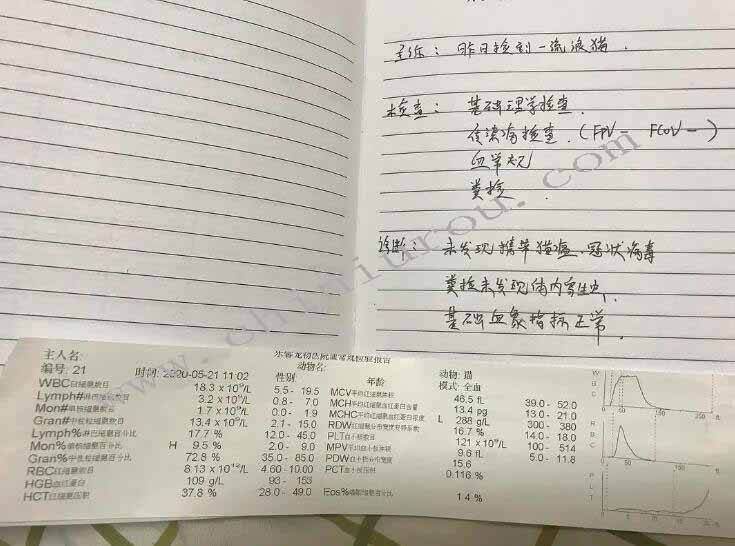 主诉：昨日捡到一流浪猫.
检查：基础理学检查.
传染病检查.（FPV－ FCoV－）
血常规
粪检.
诊断：未发现携带猫瘟、冠状病毒
粪检未发现体内寄生虫.
基础血象指标正常.
www.chhiurou.com
宠物医院血常规检验报告
主人名: 动物名: 动物: 猫
编号: 21 时间: 2020-05-21 11:02 性别: 年龄 模式: 全血
WBC白细胞数目 18.3 x 10⁹/L 5.5 - 19.5 MCV平均红细胞体积 46.5 fL 39.0 - 52.0
Lymph#淋巴细胞数目 3.2 x 10⁹/L 0.8 - 7.0 MCH平均红细胞血红蛋白含量 13.4 pg 13.0 - 21.0
Mon#单核细胞数目 1.7 x 10⁹/L 0.0 - 1.9 MCHC平均红细胞血红蛋白浓度 L 288 g/L 300 - 380
Gran#中性粒细胞数目 13.4 x 10⁹/L 2.1 - 15.0 RDW红细胞分布宽度变异系数 16.7 % 14.0 - 18.0
Lymph%淋巴细胞百分比 17.7 % 12.0 - 45.0 PLT血小板数目 121 x 10⁹/L 100 - 514
Mon%单核细胞百分比 H 9.5 % 2.0 - 9.0 MPV平均血小板体积 9.6 fL 5.0 - 11.8
Gran%中性粒细胞百分比 72.8 % 35.0 - 85.0 PDW血小板分布宽度 15.6
RBC红细胞数目 8.13 x 10¹²/L 4.60 - 10.00 PCT血小板压积 0.116 %
HGB血红蛋白 109 g/L 93 - 153
HCT红细胞压积 37.8 % 28.0 - 49.0 Eos%嗜酸细胞百分比 1.4 %
WBC
RBC
PLT